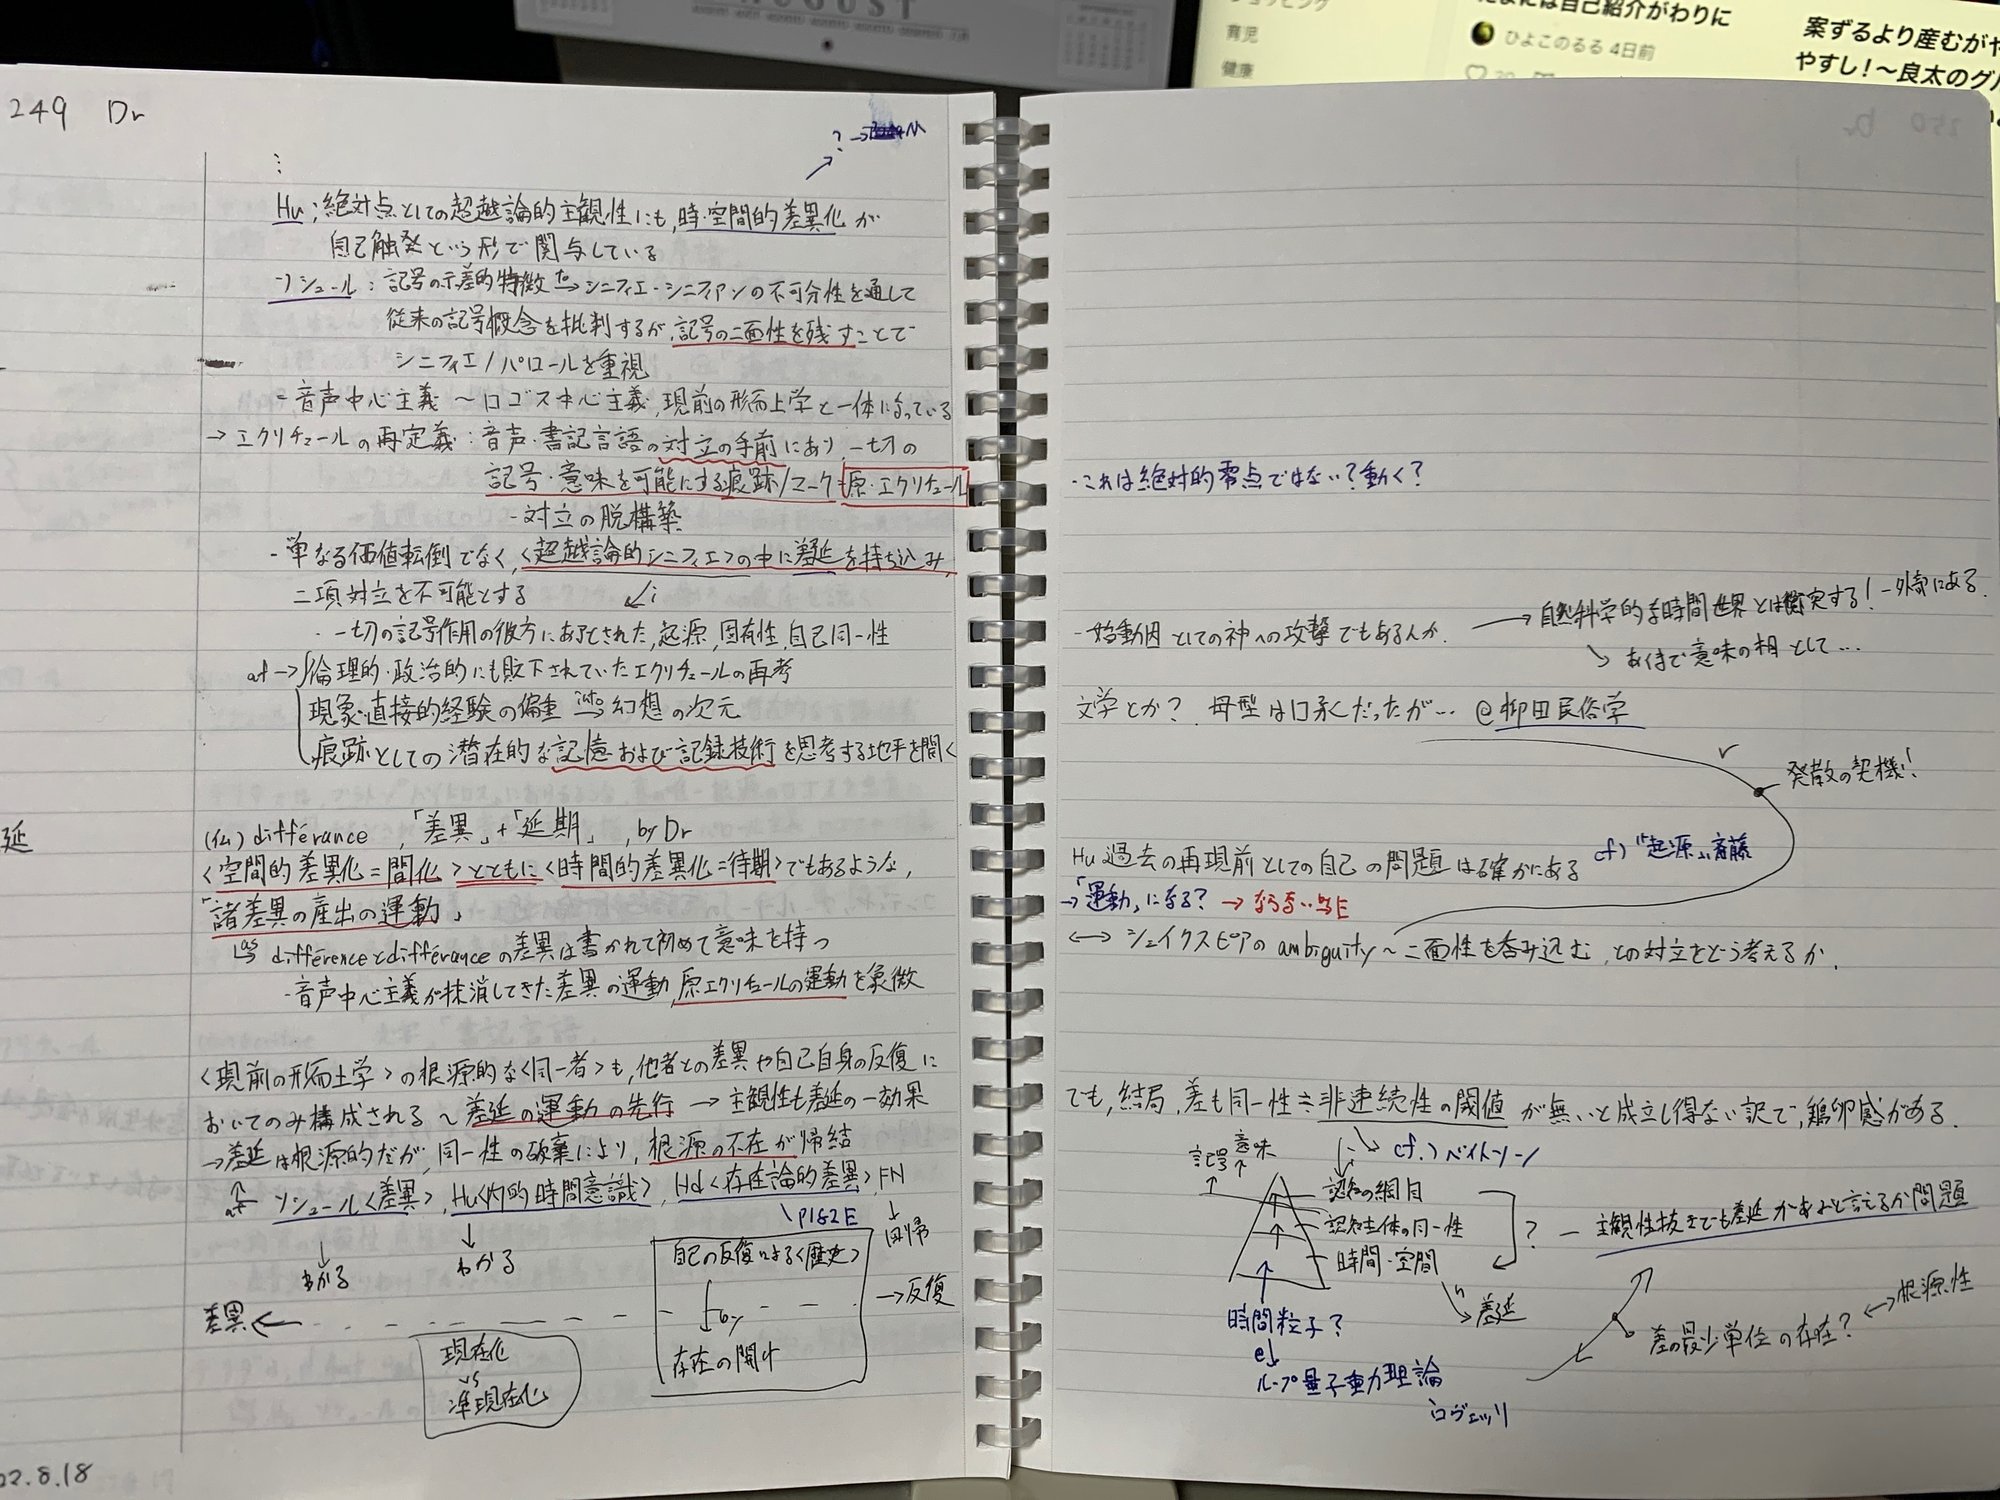 AUGUST
ショッピング
育児
健康
たまには自己紹介がわりに
ひよこのるる 4日前
案ずるより産むがや
やすし！〜良太のグル
249 Dr
?
Hu;絶対点としての超越論的主観性にも,時・空間的差異化が
自己触発という形で関与している
ソシュール:記号の示差的特徴 to→シニフィエ・シニフィアンの不可分性を通して
従来の記号概念を批判するが,記号の二面性を残すことで
シニフィエ/パロールを重視
=音声中心主義〜ロゴス中心主義,現前の形而上学と一体になっている
→エクリチュールの再定義:音声・書記言語の対立の手前にあり,一切の
記号・意味を可能にする痕跡/マーク=原・エクリチュール
-対立の脱構築
-単なる価値転倒でなく,<超越論的シニフィエ>の中に差延を持ち込み,
二項対立を不可能とする
・一切の記号作用の彼方にあるとされた,起源,固有性,自己同一性
af→倫理的・政治的にも貶下されていたエクリチュールの再考
現象・直接的経験の偏重 into→幻想の次元
痕跡としての潜在的な記憶および記録技術を思考する地平を開く
延
(仏)différance 「差異」+「延期」, by Dr
<空間的差異化=間化>とともに<時間的差異化=待期>でもあるような,
「諸差異の産出の運動」
as différenceとdifféranceの差異は書かれて初めて意味を持つ
-音声中心主義が抹消してきた差異の運動,原エクリチュールの運動を象徴
<現前の形而上学>の根源的な<同一者>も,他者との差異や自己自身の反復に
おいてのみ構成される〜差延の運動の先行→主観性も差延の一効果
→差延は根源的だが,同一性の破棄により,根源の不在が帰結
af ソシュール<差異>,Hu<内的時間意識>,Hd<存在論的差異>,FN
P182E
回帰
わかる
わかる
自己の反復による<歴史>
by
存在の開け
→反復
差異←
現在化
vs
準現在化
22.8.18
・これは絶対的零点ではない?動く?
-始動因としての神への攻撃でもあるんか.
→自然科学的な時間世界とは衝突する!-外部にある.
あくまで意味の相として…
文学とか? 母型は口承だったが… @柳田民俗学
r
発散の契機!
Hu 過去の再現前としての自己の問題は確かにある
cf)『起源』斎藤
→「運動」になる?
→ならない
↔シェイクスピアのambiguity〜二面性を呑み込む,との対立をどう考えるか.
でも,結局,差も同一性≒非連続性の閾値が無いと成立し得ない訳で,鶏卵感がある.
cf.)ベイトソン
記号
意味
認知の網目
認知主体の同一性
時間・空間
?
-主観性抜きでも差延があると言えるか問題
差延
時間粒子?
e↓
ループ量子重力理論
ロヴェッリ
差の最少単位の存在?
↔根源性